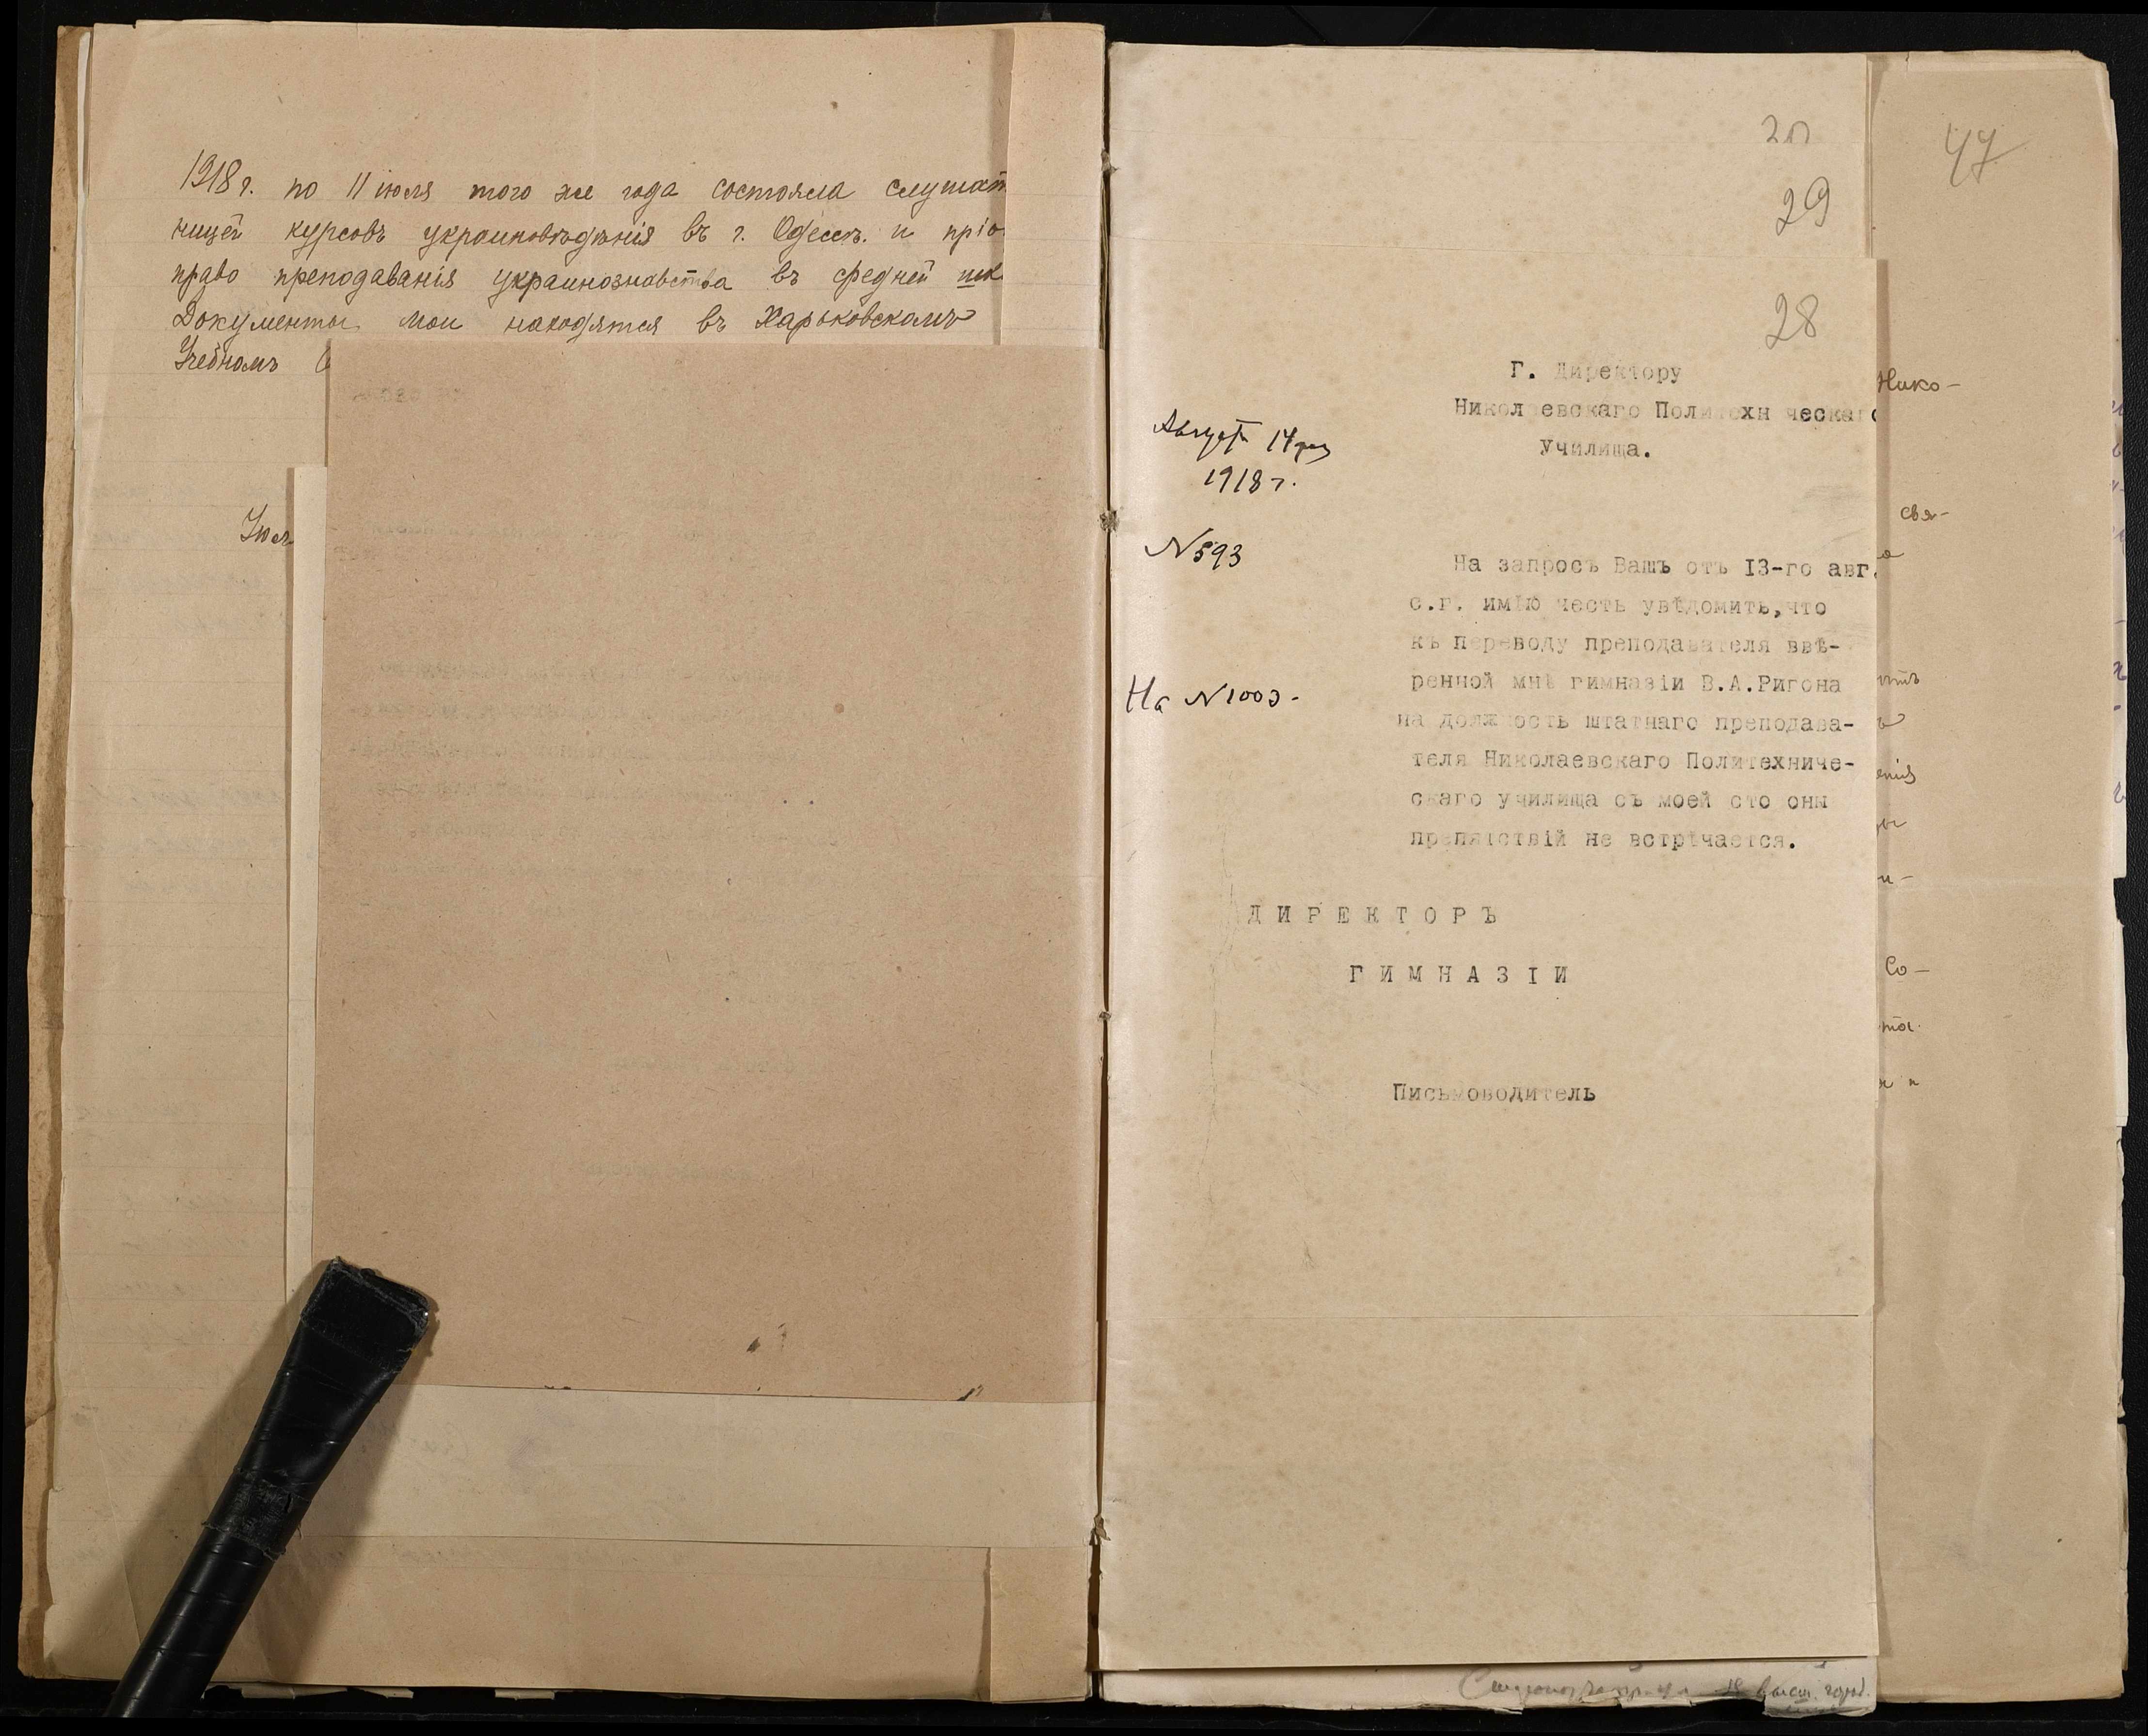 1918 г. по 11 июля того же года состояла слушат
ницей курсовъ украиновѣдѣнія въ г. Одессѣ. и пріо
право преподаванія украинознавства въ средней шк
Документы мои находятся въ Харьковскомъ
Учебномъ
Июл
29
28
Г. Директору
Никол евскаго Политехн ческаго
Училища.
Августа 14 дня
1918 г.
N 593
На N 1003 -
На запросъ Вашъ отъ I3-го авг.
с.г. имѣю честь увѣдомить,что
къ переводу преподавателя ввѣ-
ренной мнѣ гимназіи В.А.Ригона
на должность штатнаго преподава-
теля Николаевскаго Политехниче-
скаго училища съ моей сто оны
препятствій не встрѣчается.
Д И Р Е К Т О Р Ъ
Г И М Н А З І И
Письмоводитель
47
Нико-
свя-
Со-